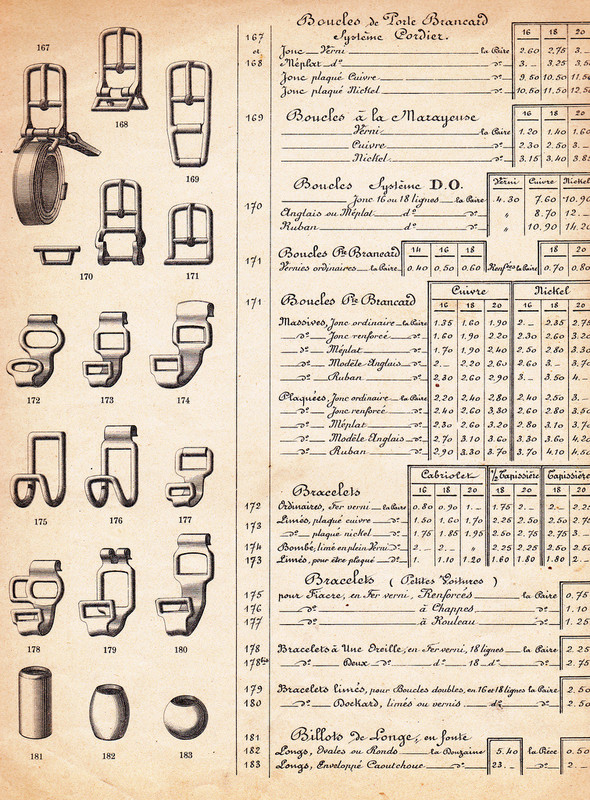 167
168
169
170
171
172
173
174
175
176
177
178
179
180
181
182
183
Boucles de Porte Brancard
Système Cordier.
16 18 20
167 et 168
Jonc Verni la Paire 2.60 2.75 3._
Méplat do do 3._ 3.25 3.5
Jonc plaqué Cuivre do 9.50 10.50 11.5
Jonc plaqué Nickel do 10.50 11.50 12.5
169 Boucles à la Marayeuse 16 18 20
Verni la Paire 1.20 1.40 1.60
Cuivre do 2.30 2.50 3._
Nickel do 3.15 3.40 3.8
Boucles Système D.O. Verni Cuivre Nickel
170 Jonc 16 ou 18 lignes la Paire 4.30 7.60 10.90
Anglais ou Méplat do do " 8.70 12._
Ruban do do " 10.90 14.20
171 Boucles Pte Brancard 14 16 18 18 20
Vernies ordinaires la Paire 0.40 0.50 0.60 Renfées la Paire 0.70 0.80
171 Boucles Pte Brancard Cuivre Nickel
16 18 20 16 18 20
Massives, Jonc ordinaire la Paire 1.35 1.60 1.90 2._ 2.35 2.75
do Jonc renforcé do 1.60 1.90 2.20 2.30 2.60 3.20
do Méplat do 1.70 1.90 2.40 2.50 2.80 3.30
do Modèle Anglais do 2._ 2.20 2.60 2.60 3._ 3.70
do Ruban do 2.30 2.60 2.90 3._ 3.50 4._
Plaquées, Jonc ordinaire la Paire 2.20 2.40 2.80 2.40 2.50 3._
do Jonc renforcé do 2.40 2.60 3.30 2.60 2.80 3.50
do Méplat do 2.30 2.60 3.20 2.80 3.10 3.7
do Modèle Anglais do 2.70 3.10 3.60 3.30 3.60 4.20
do Ruban do 2.90 3.30 3.70 3.70 4.10 4.50
Cabriolet ½ Tapissière Tapissière
Bracelets 16 18 20 18 20 18 20
172 Ordinaires, Fer verni la Paire 0.80 0.90 1._ 1.75 2._ 2._ 2.25
173 Limés, plaqué cuivre do 1.50 1.60 1.70 2.25 2.50 2.50 2.75
do plaqué nickel do 1.75 1.85 1.95 2.50 2.75 2.75 3._
174 Bombé, limé en plein Verni do 2._ 2._ " 2.25 2.25 2.50 2.50
173 Limés, pour être plaqué do 1._ 1.10 1.20 1.60 1.80 1.80 2._
Bracelets (Petites Voitures)
175 pour Fiacre, en Fer verni, Renforcés la Paire 0.75
176 do à Chappes do 1.10
177 do à Rouleau do 1.25
178 Bracelets à Une Oreille, en Fer verni, 18 lignes la Paire 2.25
178bis do Deux do do 18 do do 2.75
179 Bracelets limés, pour Boucles doubles, en 16 et 18 lignes la Paire 2.50
180 do Dockard, limés ou vernis do do 2.50
181 Billots de Longe, en fonte
182 Longs, Ovales ou Ronds la Douzaine 5.40 la Pièce 0.50
183 Longs, Enveloppé Caoutchouc do 23._ do 2._